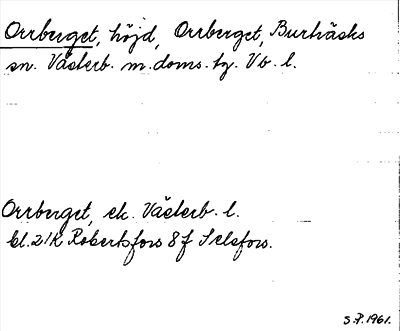 Orrberget, höjd, Orrberget, Burträsks
sn. Västerb. m. doms. tg. Vb. l.
Orrberget, ek. Västerb. l.
bl. 21K Robertsfors 8f Selsfors.
S.P. 1961.